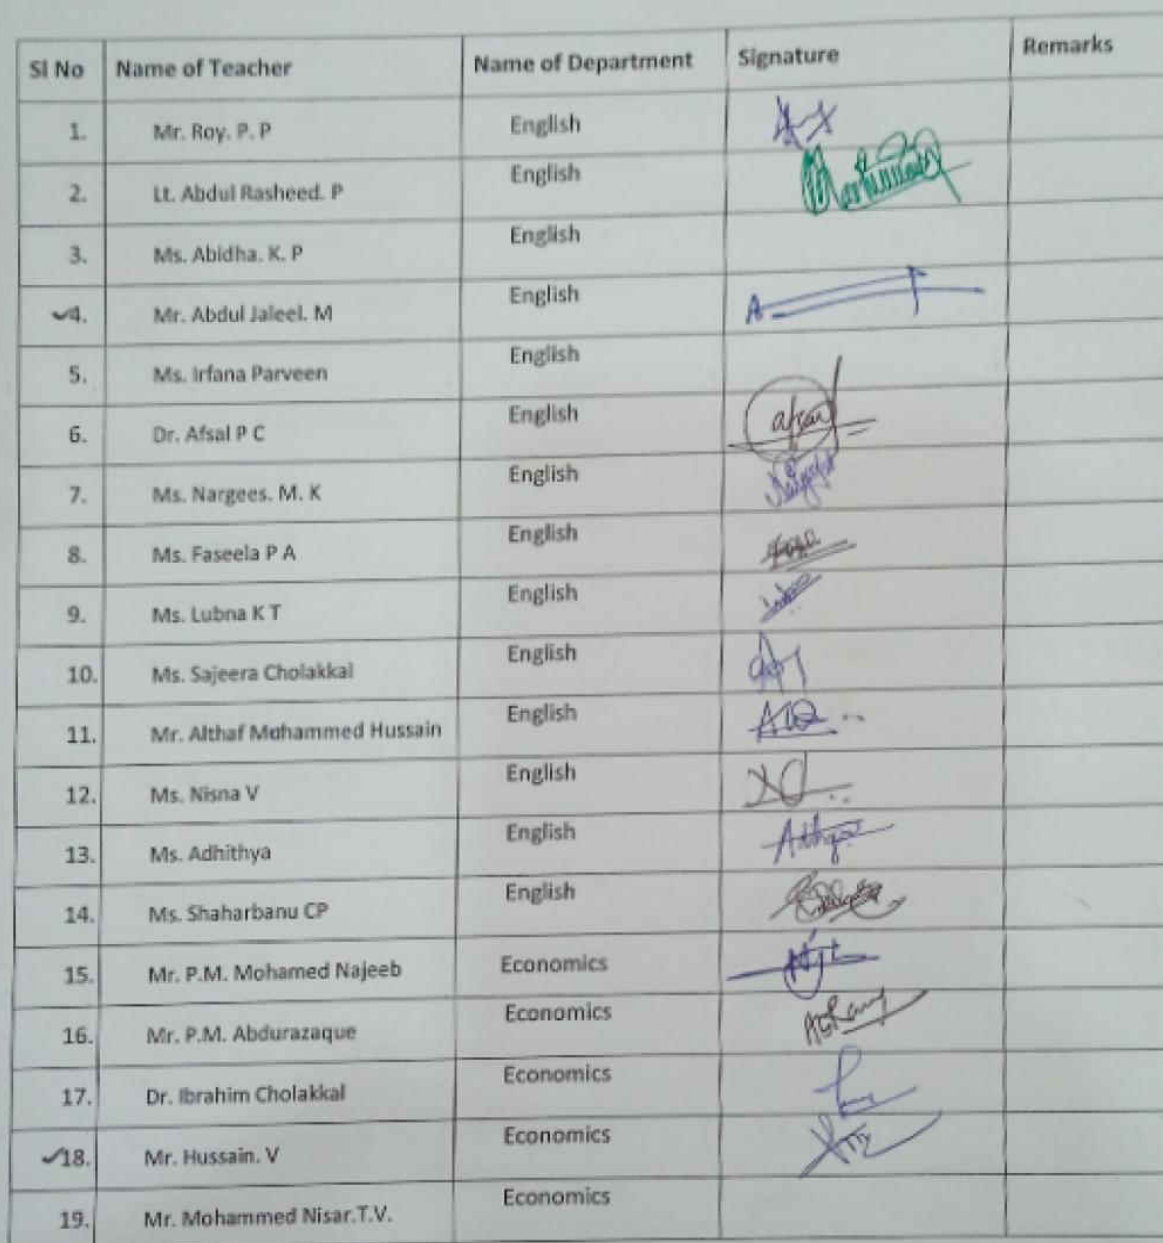 Sl No Name of Teacher Name of Department Signature Remarks
1. Mr. Roy. P. P English
2. Lt. Abdul Rasheed. P English
3. Ms. Abidha. K. P English
4. Mr. Abdul Jaleel. M English
5. Ms. Irfana Parveen English
6. Dr. Afsal P C English afsal
7. Ms. Nargees. M. K English
8. Ms. Faseela P A English
9. Ms. Lubna K T English
10. Ms. Sajeera Cholakkal English
11. Mr. Althaf Mohammed Hussain English
12. Ms. Nisna V English
13. Ms. Adhithya English
14. Ms. Shaharbanu CP English
15. Mr. P.M. Mohamed Najeeb Economics
16. Mr. P.M. Abdurazaque Economics
17. Dr. Ibrahim Cholakkal Economics
18. Mr. Hussain. V Economics
19. Mr. Mohammed Nisar.T.V. Economics